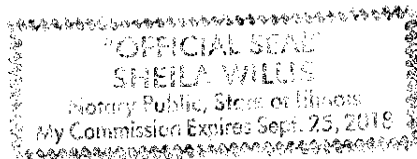 "OFFICIAL SEAL"
SHEILA WILLIS
Notary Public, State of Illinois
My Commission Expires Sept. 25, 2018